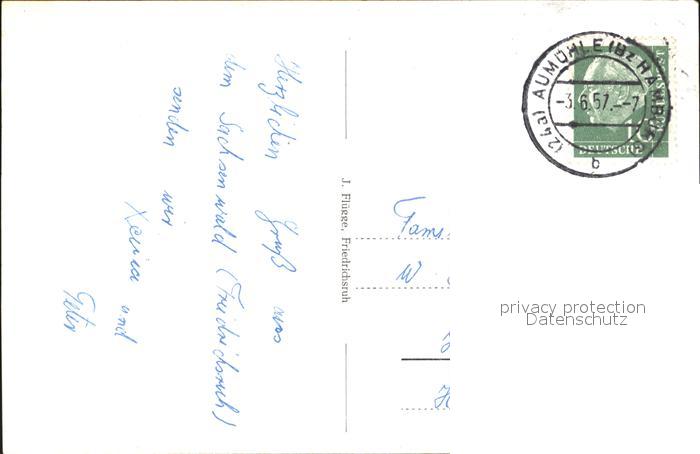 Herzlichen Gruß aus
dem Sachsenwald (Friedrichsruh)
senden wir
Xenia und
Peter
J. Flügge, Friedrichsruh
Fam.
W.
(24a) AUMÜHLE (Bz HAMBURG)
-3.6.57.--7
b
10
DEUTSCHE
privacy protection
Datenschutz